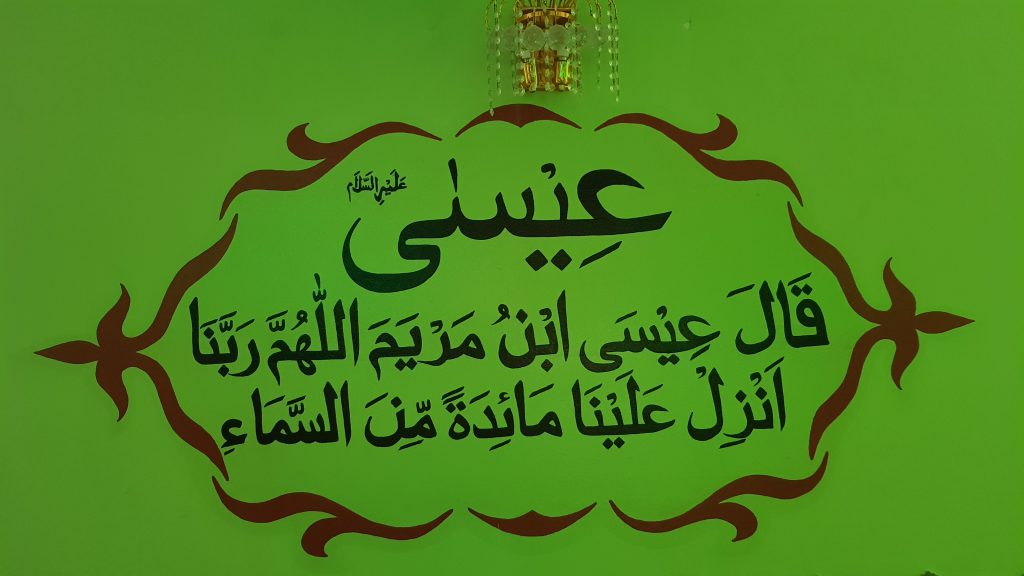 عِيْسٰى عَلَيْهِ السَّلَام
قَالَ عِيْسَى ابْنُ مَرْيَمَ اللّٰهُمَّ رَبَّنَا
اَنْزِلْ عَلَيْنَا مَائِدَةً مِّنَ السَّمَاءِ